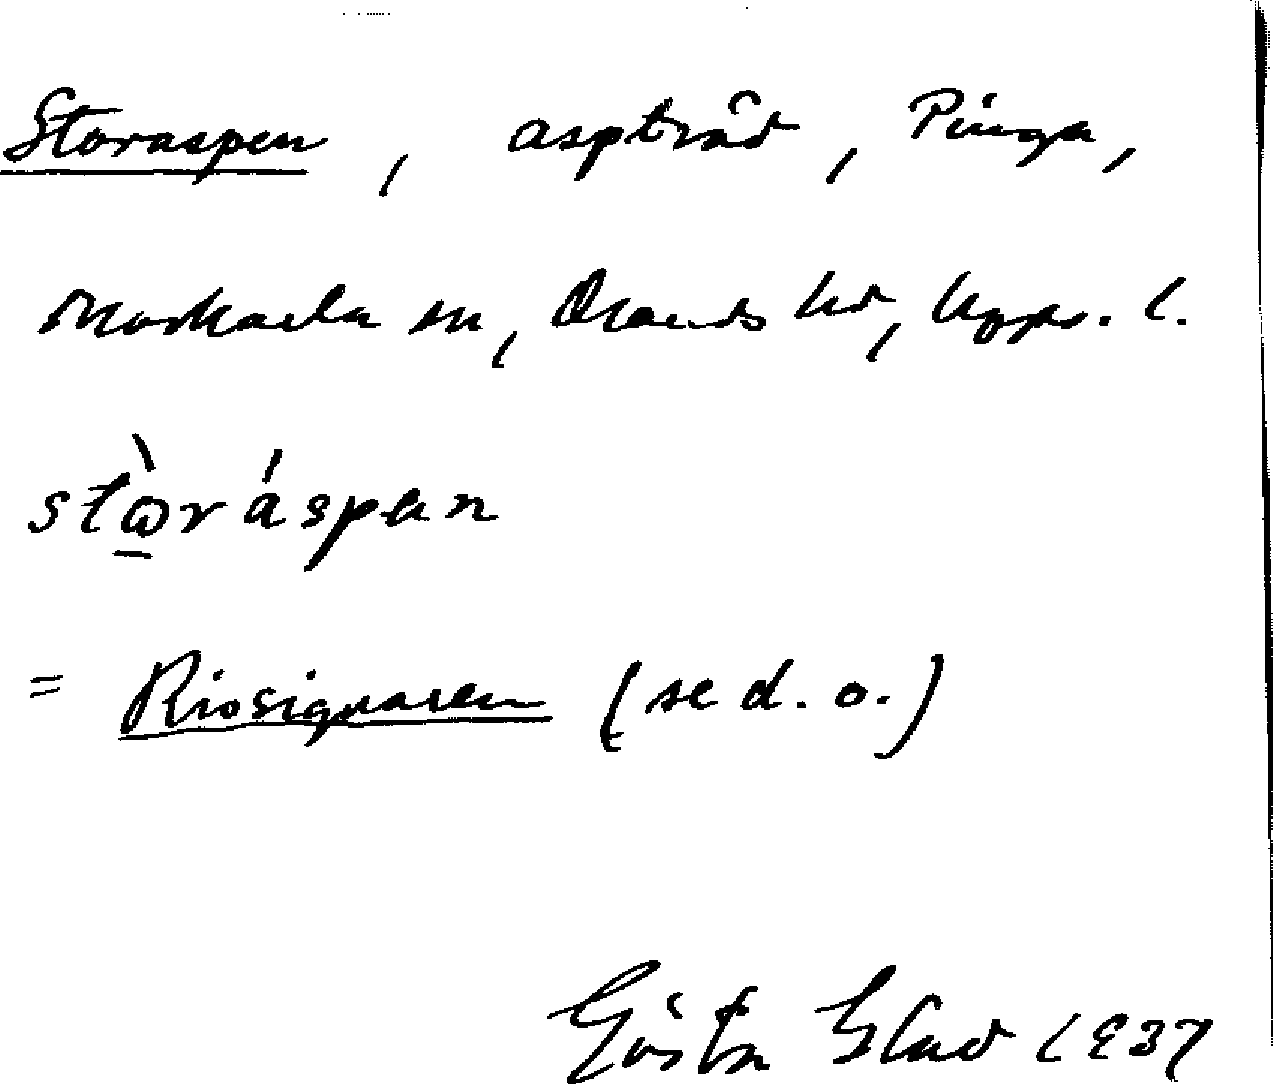 Storaspen, aspträd, Pinga,
Morkarla sn, Olands hd, Upps. l.
stὼ̠ráspan
= Riosignaren (se d. o.)
Gösta Blad 1937